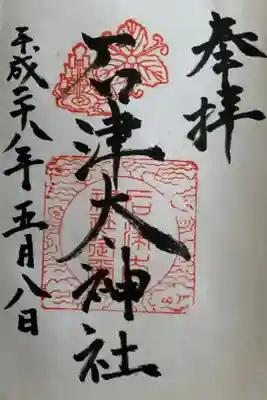 奉拝
石津太神社
平成二十八年五月八日